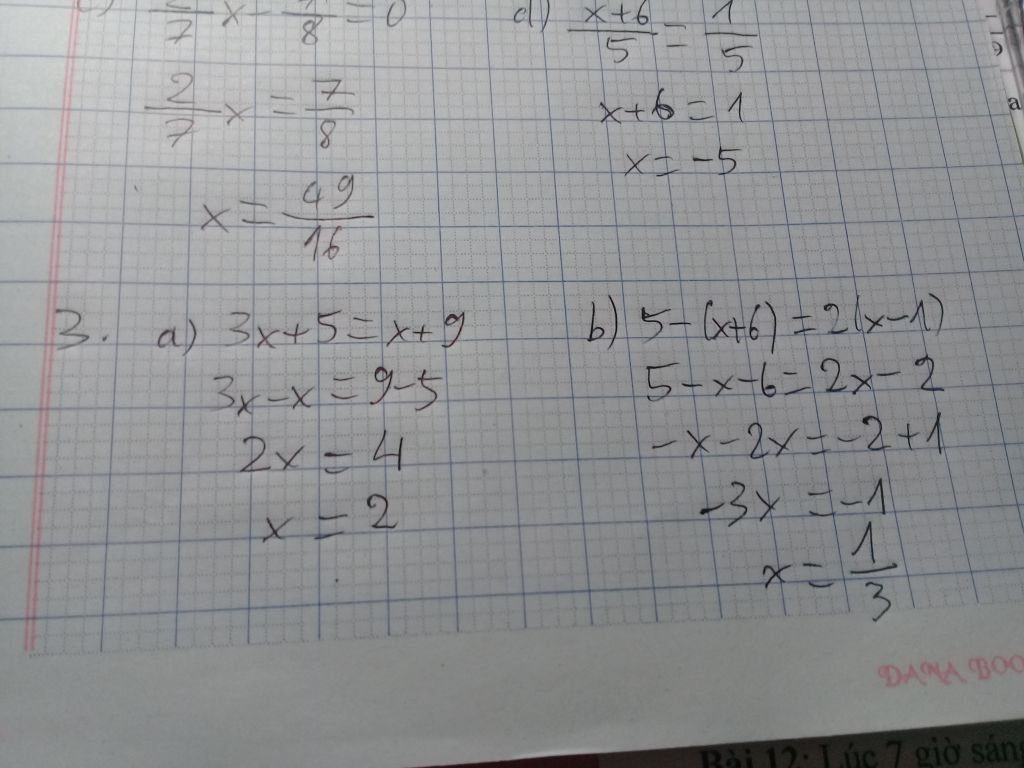 c) 2/7 x - 7/8 = 0
2/7 x = 7/8
x = 49/16
d) x+6/5 = 1/5
x+6 = 1
x = -5
3. a) 3x+5=x+9
3x-x=9-5
2x = 4
x = 2
b) 5-(x+6)=2(x-1)
5-x-6=2x-2
-x-2x=-2+1
-3x=-1
x = 1/3
Bài 12: Lúc 7 giờ sáng